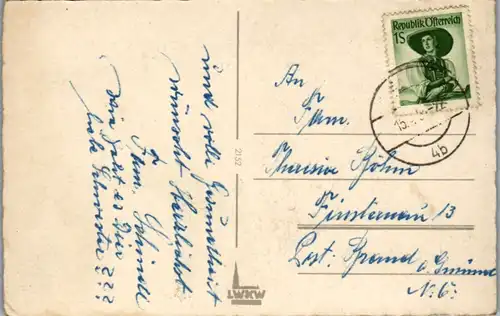 und volle Gesundheit
wünscht Herzlichst
Fam. Schindl
wie geht es Dir
liebe Schwester ???
2152
LWKW
Republik Österreich
1S
15.
4b
An
Fam.
Theresia Böhm
Finsternau 13
Post: Brand
b. Gmünd
N.Ö.